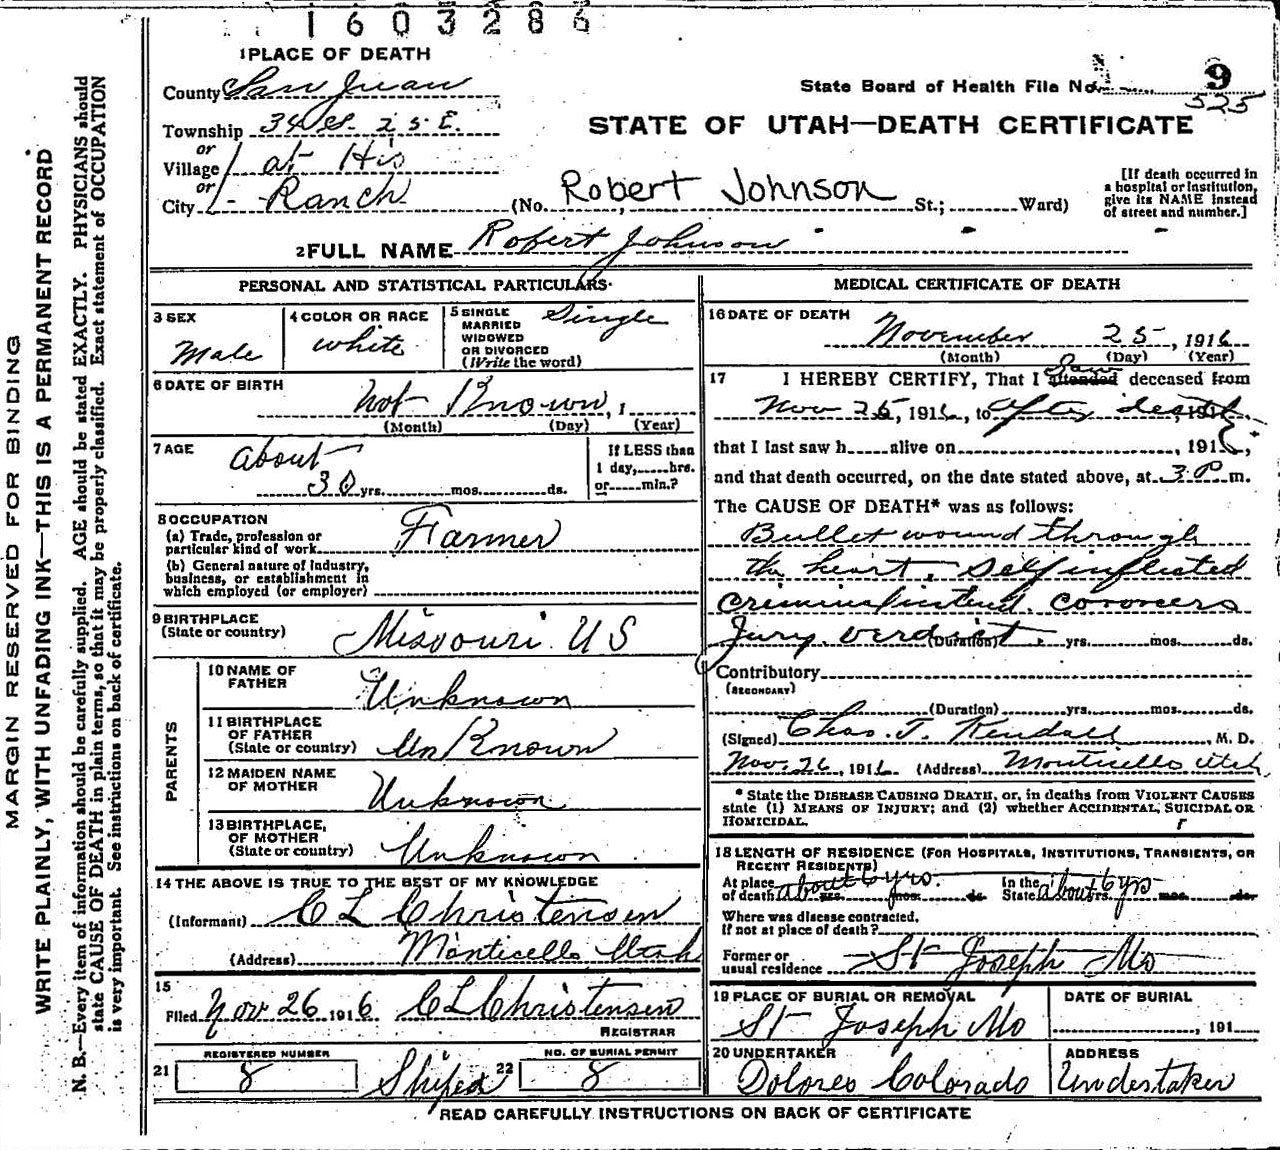 1603286
1 PLACE OF DEATH
County San Juan
State Board of Health File No. 9
525
Township 34 S. 25 E.
STATE OF UTAH—DEATH CERTIFICATE
or
Village at His
or
City Ranch
(No. Robert Johnson St.; Ward)
[If death occurred in a hospital or institution, give its NAME instead of street and number.]
2 FULL NAME Robert Johnson
PERSONAL AND STATISTICAL PARTICULARS
3 SEX
Male
4 COLOR OR RACE
white
5 SINGLE
MARRIED
WIDOWED
OR DIVORCED
(Write the word)
Single
6 DATE OF BIRTH
Not Known, 1
(Month) (Day) (Year)
7 AGE
about
30 yrs. mos. ds.
If LESS than
1 day, hrs.
or min.?
8 OCCUPATION
(a) Trade, profession or
particular kind of work Farmer
(b) General nature of Industry,
business, or establishment in
which employed (or employer)
9 BIRTHPLACE
(State or country) Missouri US
PARENTS
10 NAME OF
FATHER Unknown
11 BIRTHPLACE
OF FATHER
(State or country) UnKnown
12 MAIDEN NAME
OF MOTHER Unknown
13 BIRTHPLACE,
OF MOTHER
(State or country) Unknown
14 THE ABOVE IS TRUE TO THE BEST OF MY KNOWLEDGE
(Informant) C L Christensen
(Address) Monticello Utah
15
Filed Nov 26 1916 C L Christensen
REGISTRAR
REGISTERED NUMBER
21 8
Shiped
NO. OF BURIAL PERMIT
22 8
MEDICAL CERTIFICATE OF DEATH
16 DATE OF DEATH
November 25, 1916
(Month) (Day) (Year)
17 I HEREBY CERTIFY, That I attended Saw deceased from
Nov 25, 1916, to after death, 191
that I last saw h alive on , 191 ,
and that death occurred, on the date stated above, at 3 P m.
The CAUSE OF DEATH* was as follows:
Bullet wound through
the heart. Self inflicted
Criminal intend. Coroners
Jury verdict. (Duration) yrs. mos. ds.
Contributory
(SECONDARY)
(Duration) yrs. mos. ds.
(Signed) Chas. T. Kendall M. D.
Nov. 26, 1916 (Address) Monticello Utah
* State the DISEASE CAUSING DEATH, or, in deaths from VIOLENT CAUSES
state (1) MEANS OF INJURY; and (2) whether ACCIDENTAL, SUICIDAL OR
HOMICIDAL.
18 LENGTH OF RESIDENCE (FOR HOSPITALS, INSTITUTIONS, TRANSIENTS, OR
RECENT RESIDENTS)
At place
of death about 6 yrs. mos. ds.
In the
State about 6 yrs mos. ds.
Where was disease contracted,
If not at place of death?
Former or
usual residence St Joseph Mo
19 PLACE OF BURIAL OR REMOVAL
St Joseph Mo
DATE OF BURIAL
, 191
20 UNDERTAKER
Dolores Colorado
ADDRESS
Undertaker
READ CAREFULLY INSTRUCTIONS ON BACK OF CERTIFICATE
MARGIN RESERVED FOR BINDING
WRITE PLAINLY, WITH UNFADING INK—THIS IS A PERMANENT RECORD
N. B.—Every item of information should be carefully supplied. AGE should be stated EXACTLY. PHYSICIANS should
state CAUSE OF DEATH in plain terms, so that it may be properly classified. Exact statement of OCCUPATION
is very important. See instructions on back of certificate.